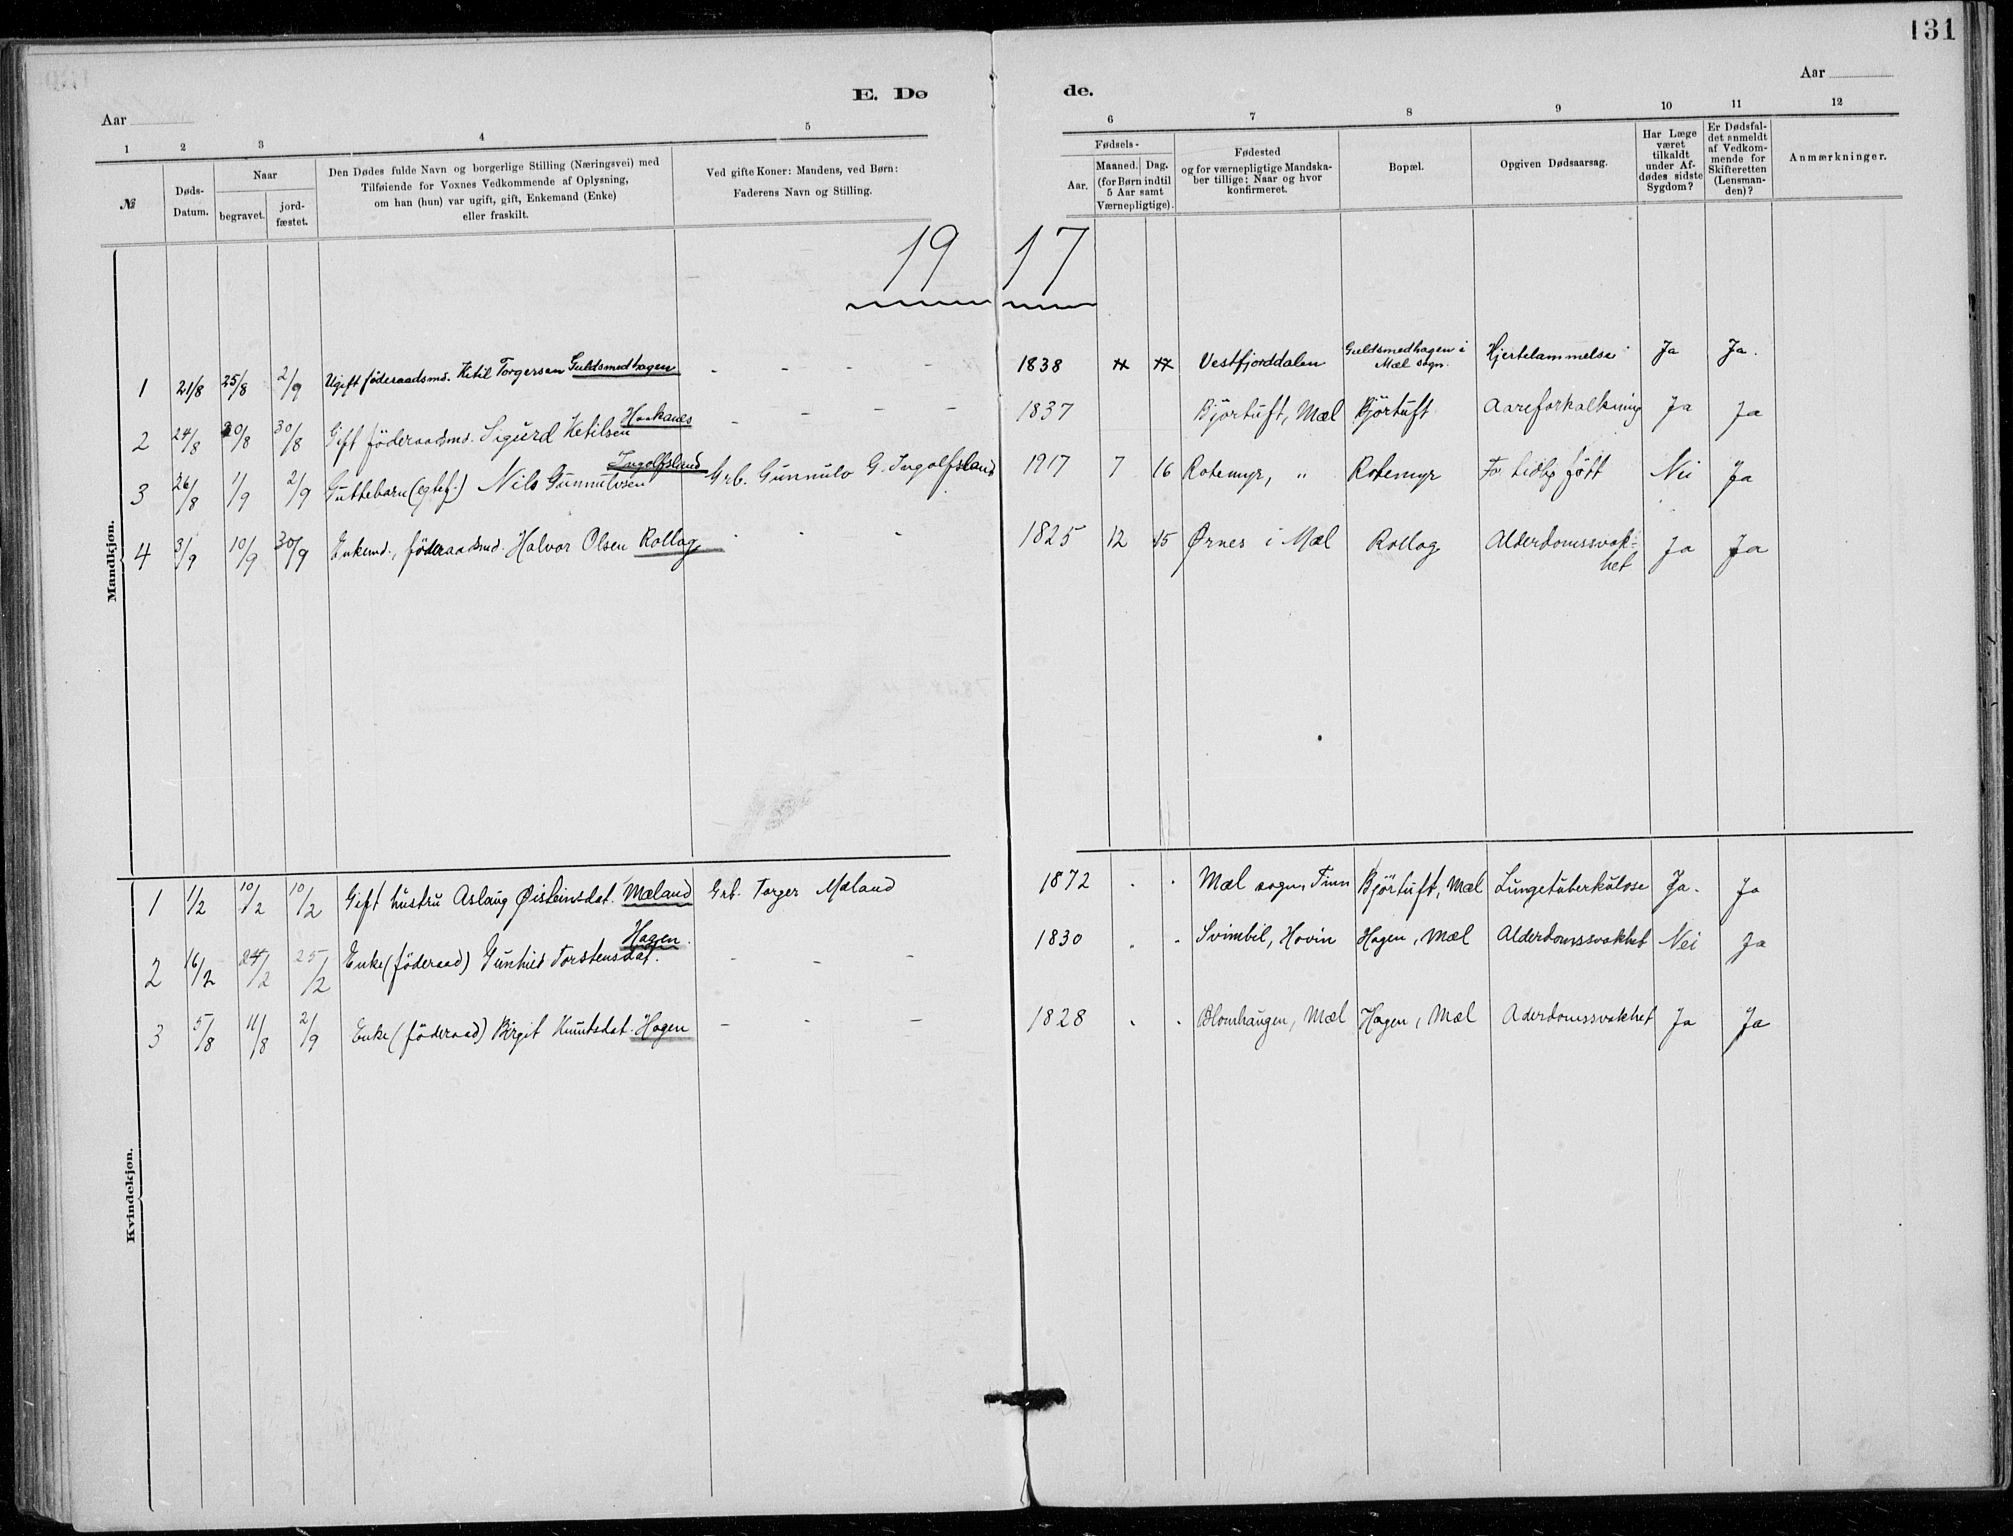 131
Aar
Aar
E. Dø de.
1 2 3 4 5 6 7 8 9 10 11 12
№
Døds-Datum.
Naar
begravet.
jord-fæstet.
Den Dødes fulde Navn og borgerlige Stilling (Næringsvei) med
Tilføiende for Voxnes Vedkommende af Oplysning,
om han (hun) var ugift, gift, Enkemand (Enke)
eller fraskilt.
Ved gifte Koner: Mandens, ved Børn:
Faderens Navn og Stilling.
Fødsels-
Aar.
Maaned. Dag.
(for Børn indtil
5 Aar samt
Værnepligtige).
Fødested
og for værnepligtige Mandska-
ber tillige: Naar og hvor
konfirmeret.
Bopæl.
Opgiven Dødsaarsag.
Har Læge
været
tilkaldt
under Af-
dødes sidste
Sygdom?
Er Dødsfal-
det anmeldt
af Vedkom-
mende for
Skifteretten
(Lensman-
den)?
Anmærkninger.
1917
Mandkjøn.
1 21/8 25/8 2/9 Ugift föderaadsmd. Ketil Torgersen Guldsmedhagen - - - - 1838 Vestfjorddalen Guldsmedhagen i Mæl sogn. Hjertelammelse Ja Ja.
2 24/8 30/8 30/8 Gift föderaadsmd. Sigurd Ketilsen Haakanes - - - - 1837 Bjørtuft, Mæl Bjørtuft Aareforkalkning Ja Ja
3 26/8 1/9 2/9 Guttebarn (egtef.) Nils Gunnulvsen Ingolfsland Grb. Gunnulv G. Ingolfsland 1917 7 16 Rotemyr, " Rotemyr For tidlig født Nei Ja
4 3/9 10/9 30/9 Enkemd., föderaadsmd. Halvor Olsen Rollag - - - 1825 12 15 Ørnes i Mæl Rollag Alderdomssvak-het Ja Ja
Kvindekjøn.
1 1/2 10/2 10/2 Gift hustru Aslaug Øisteinsdat. Mæland Grb. Torger Mæland 1872 . . Mæl sogn, Tinn Bjørtuft, Mæl Lungetuberkulose Ja. Ja
2 16/2 24/2 25/2 Enke (föderaad) Gunhild Torstensdat. Hagen. - - - 1830 . . Svimbil, Hovin Hagen, Mæl Alderdomssvakhet Nei Ja
3 5/8 11/8 2/9 Enke (föderaad) Birgit Knutsdat. Hagen - - - 1828 . . Blomhaugen, Mæl Hagen, Mæl Aderdomssvakhet Ja Ja